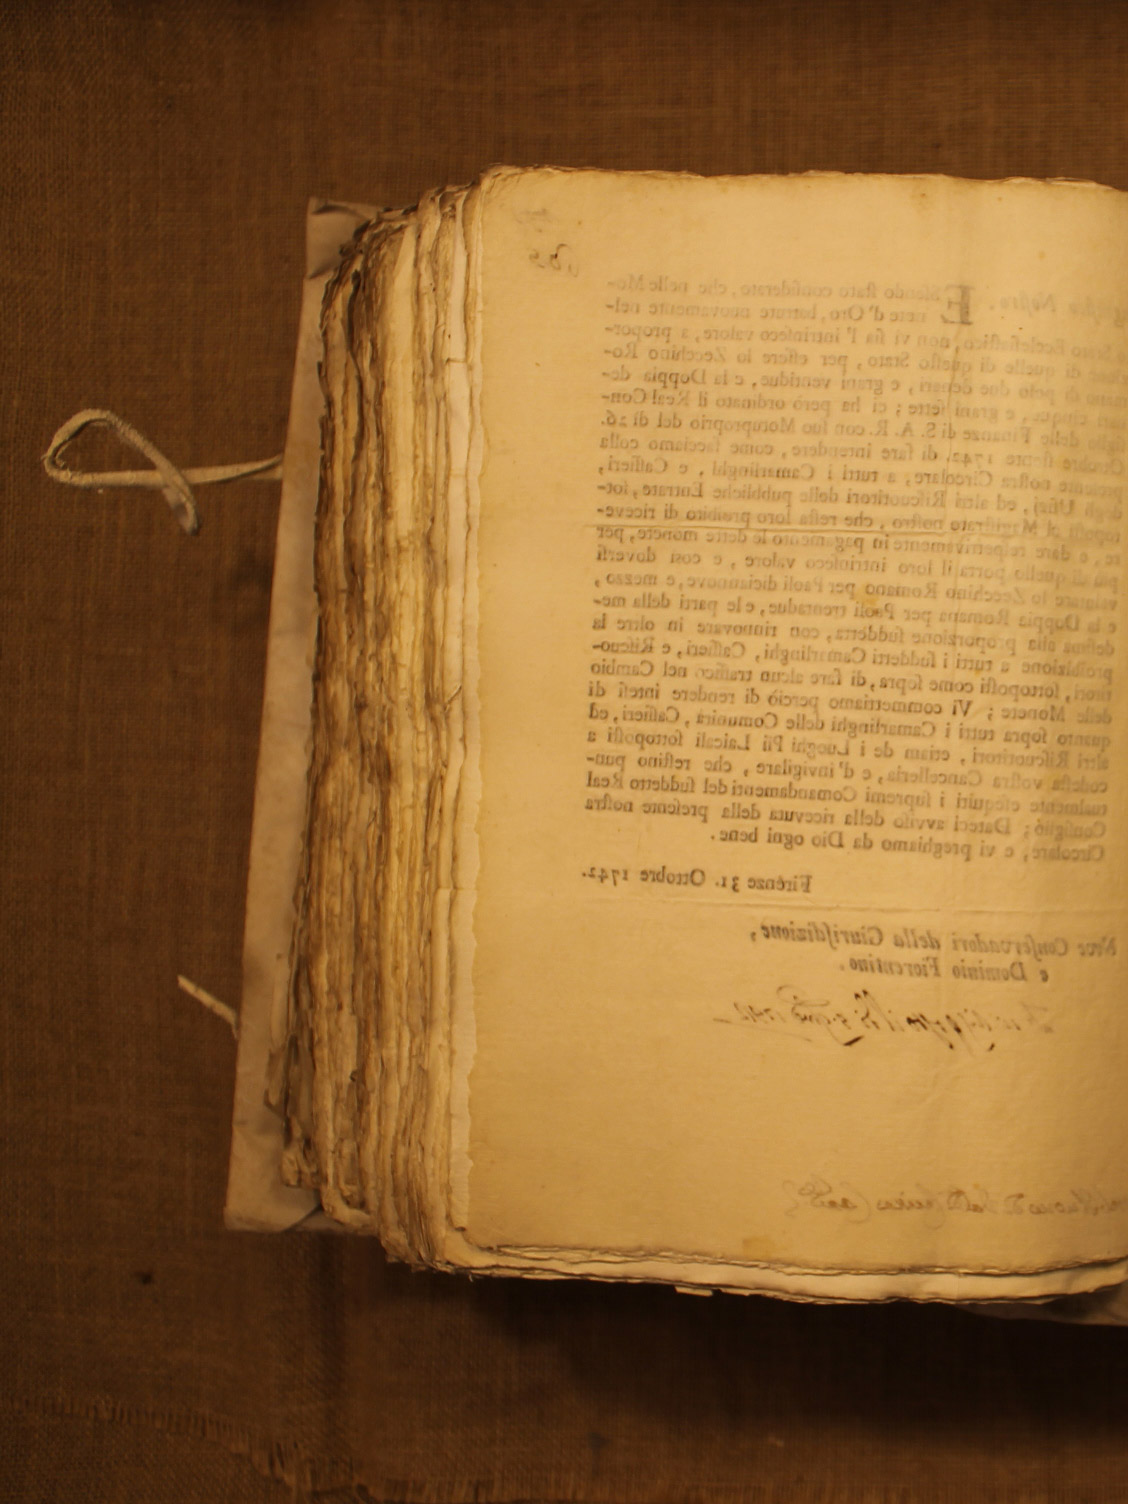 Noſtro. Eſſendo ſtato conſiderato, che nelle Mo-
nete d' Oro, battute nuovamente nel-
lo Stato Eccleſiaſtico, non vi ſia l' intrinſeco valore, a propor-
zione di quelle di queſto Stato, per eſſere lo Zecchino Ro-
mano di peſo due denari, e grani ventidue, e la Doppia de-
nari cinque, e grani ſette; ci ha però ordinato il Real Con-
ſiglio delle Finanze di S. A. R. con ſuo Motuproprio del dì 26.
Ottobre ſtante 1742. di fare intendere, come facciamo colla
preſente noſtra Circolare, a tutti i Camarlinghi, e Caſſieri,
degli Ufizj, ed altri Riſcuotitori delle pubbliche Entrate, ſot-
topoſti al Magiſtrato noſtro, che reſta loro proibito di riceve-
re, e dare reſpettivamente in pagamento le dette monete, per
più di quello porta il loro intrinſeco valore, e così doverſi
valutare lo Zecchino Romano per Paoli diciannove, e mezzo,
e la Doppia Romana per Paoli trentadue, e le parti della me-
deſima alla proporzione ſuddetta, con rinnovare in oltre la
proibizione a tutti i ſuddetti Camarlinghi, Caſſieri, e Riſcuo-
titori, ſottopoſti come ſopra, di fare alcun traffico nel Cambio
delle Monete; Vi commettiamo perciò di rendere inteſi di
quanto ſopra tutti i Camarlinghi delle Comunità, Caſſieri, ed
altri Riſcuotitori, etiam de i Luoghi Pii Laicali ſottopoſti a
codeſta voſtra Cancelleria, e d' invigilare, che reſtino pun-
tualmente eſequiti i ſupremi Comandamenti del ſuddetto Real
Conſiglio; Dateci avviſo della ricevuta della preſente noſtra
Circolare, e vi preghiamo da Dio ogni bene.
Firenze 31. Ottobre 1742.
Nove Conſervadori della Giuriſdizione,
e Dominio Fiorentino.